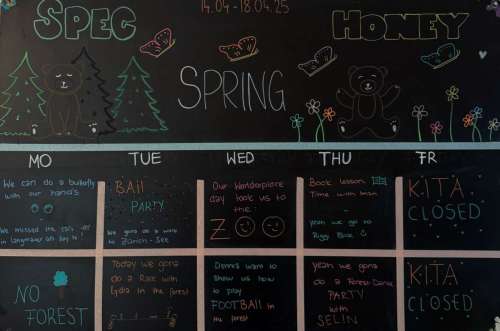 14.04-18.04.25
SPEC HONEY
SPRING
MO TUE WED THU FR
We can do a butterfly
with our hands
We missed the
BAll
PARTY
We gona go on a walk
to Zürich-See
Our Wanderplane
day took us to
the:
ZOO
Book lesson
Time with
yeah we go to
KITA
CLOSED
NO
FOREST
Today we gona
do a Race with
in the forest
want to
Show us how
to play
FOOTBAll in
the forest
yeah we gona
do a Forest Dance
PARTY
with
SELIN
KITA
CLOSED